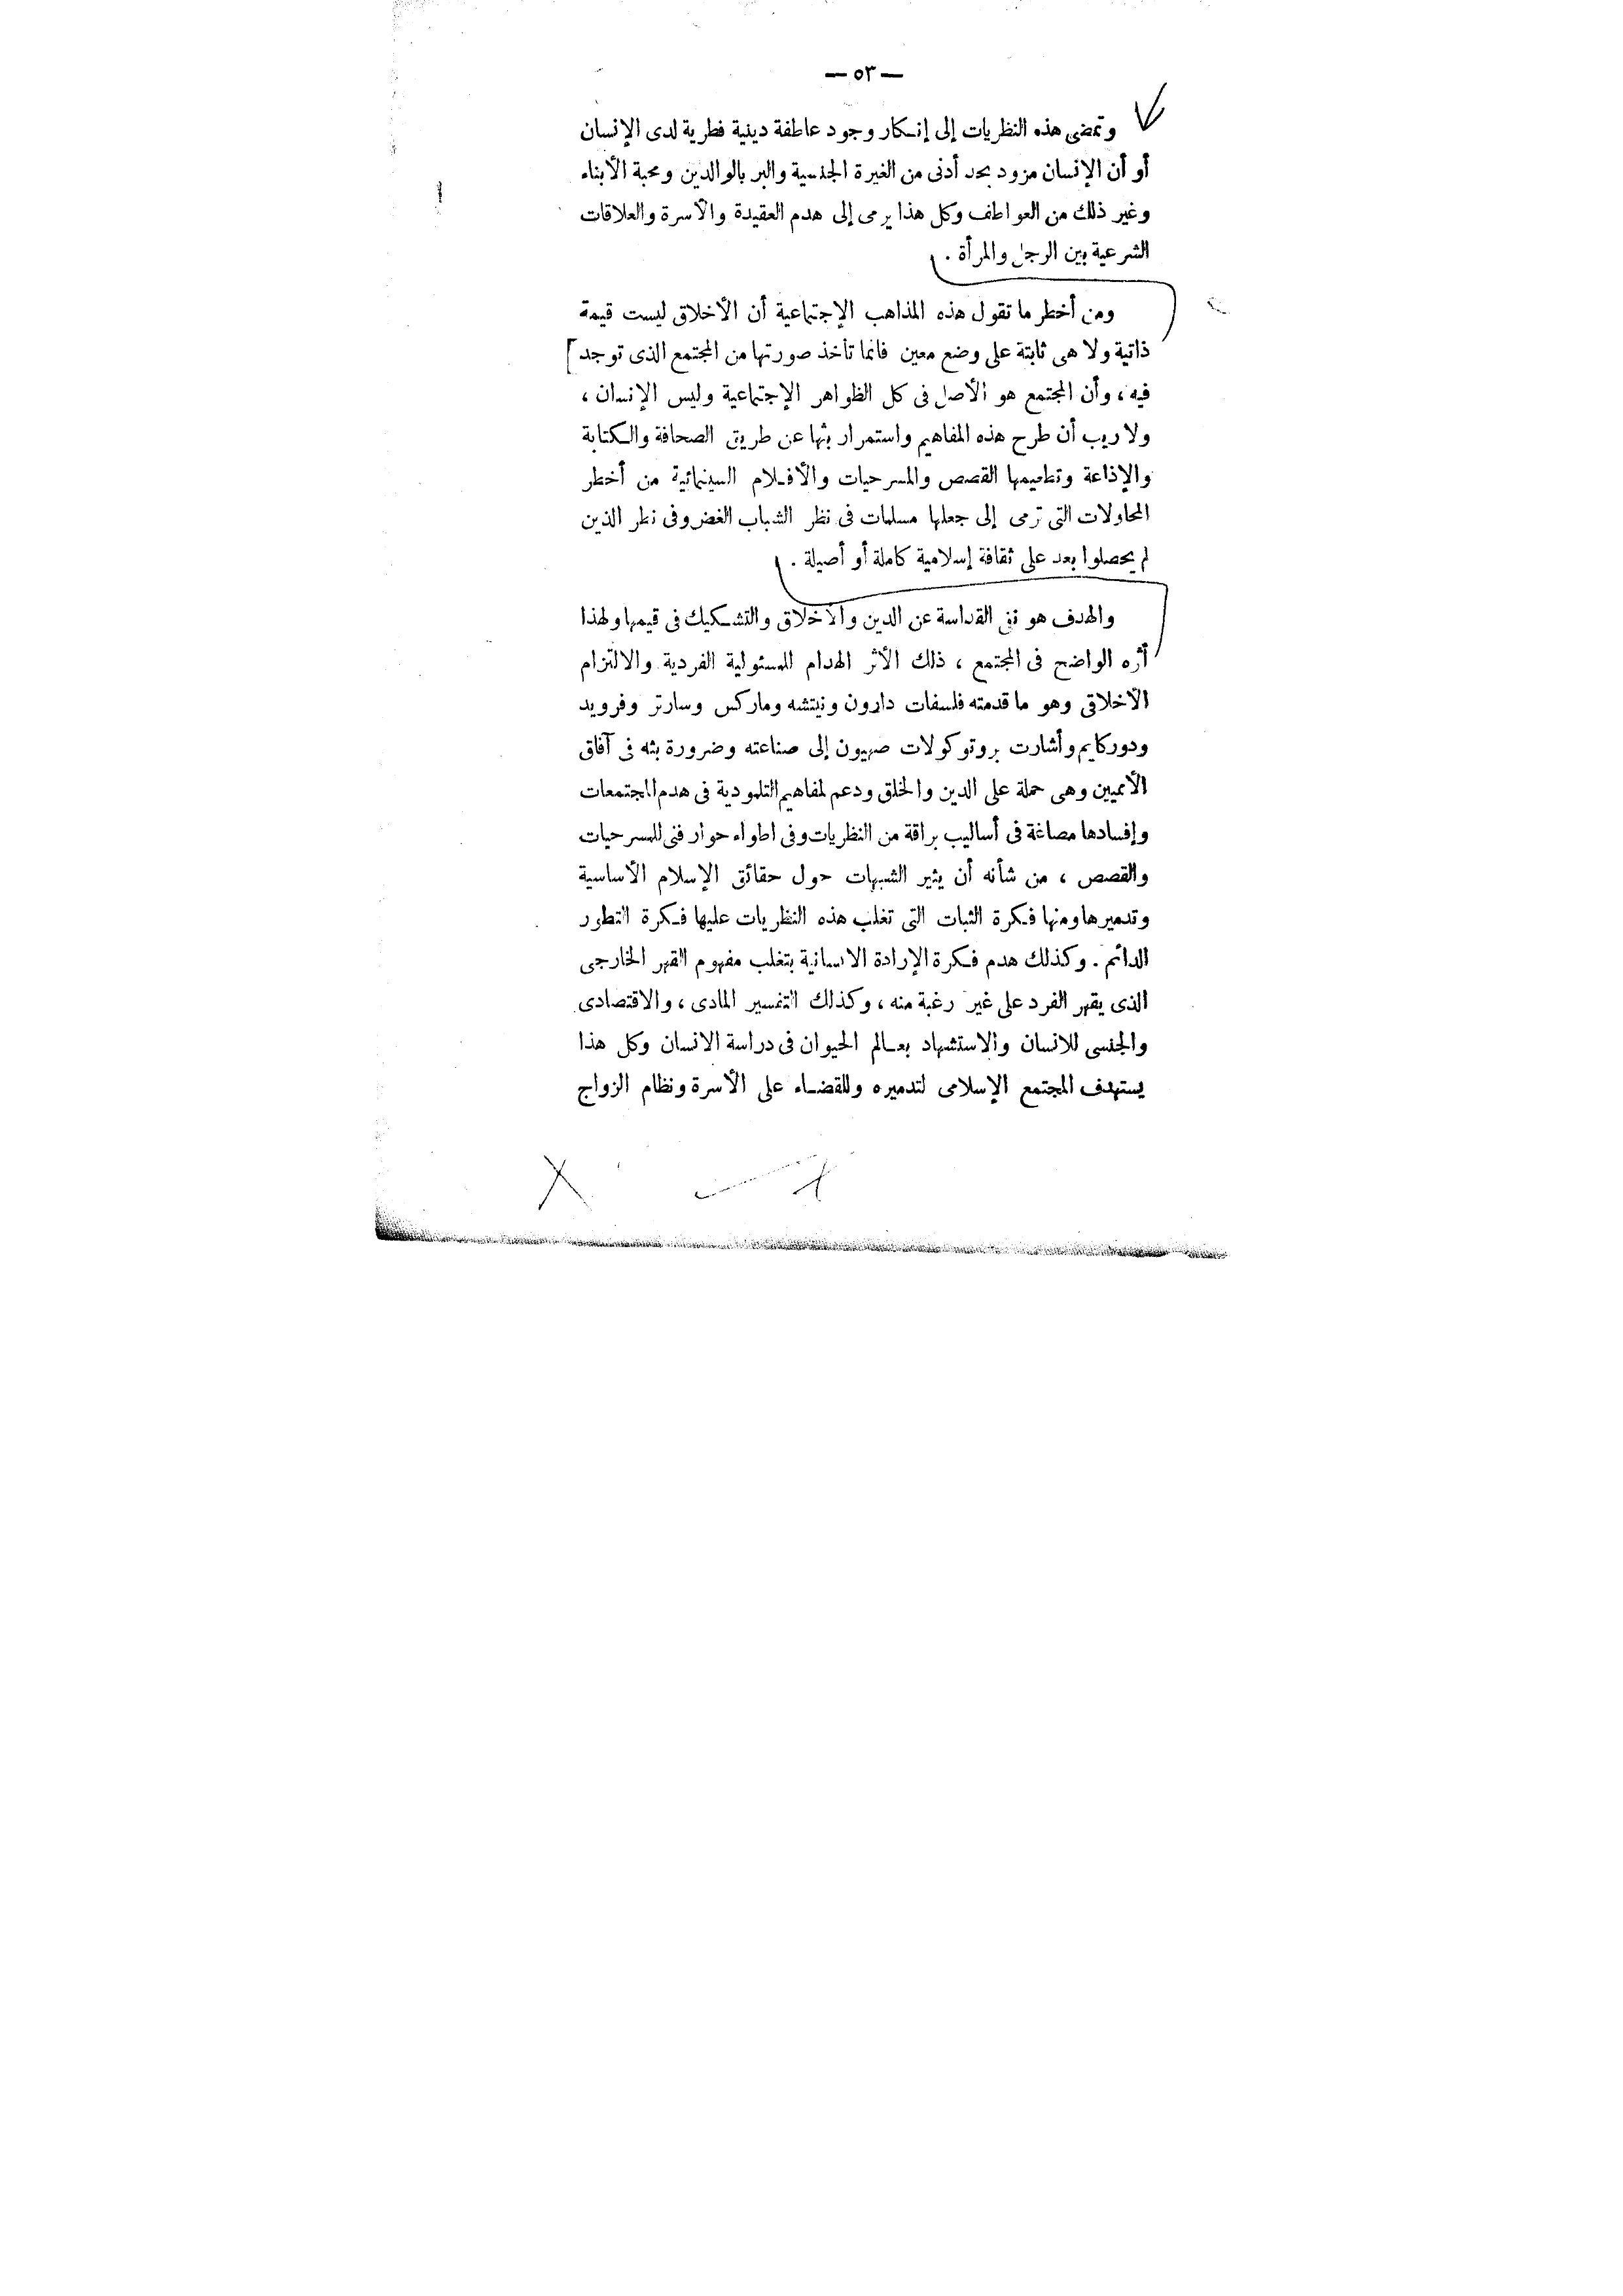 — ٥٣ —
وتمضى هذه النظريات إلى إنكار وجود عاطفة دينية فطرية لدى الإنسان
أو أن الإنسان مزود بحد أدنى من الغيرة الجنسية والبر بالوالدين ومحبة الأبناء
وغير ذلك من العواطف وكل هذا يرمى إلى هدم العقيدة والأسرة والعلاقات
الشرعية بين الرجل والمرأة .
ومن أخطر ما تقول هذه المذاهب الإجتماعية أن الأخلاق ليست قيمة
ذاتية ولا هى ثابتة على وضع معين فانما تأخذ صورتها من المجتمع الذى توجد
فيه ، وأن المجتمع هو الأصل فى كل الظواهر الإجتماعية وليس الإنسان ،
ولا ريب أن طرح هذه المفاهيم واستمرار بثها عن طريق الصحافة والكتابة
والإذاعة وتطعيمها القصص والمسرحيات والأفلام السينمائية من أخطر
المحاولات التى ترمى إلى جعلها مسلمات فى نظر الشباب الغض وفى نظر الذين
لم يحصلوا بعد على ثقافة إسلامية كاملة أو أصيلة .
والهدف هو نفى القداسة عن الدين والأخلاق والتشكيك فى قيمها ولهذا
أثره الواضح فى المجتمع ، ذلك الأثر الهدام للمسئولية الفردية والالتزام
الأخلاقى وهو ما قدمته فلسفات دارون ونيتشه وماركس وسارتر وفرويد
ودوركايم وأشارت بروتوكولات صهيون إلى صناعته وضرورة بثه فى آفاق
الأمميين وهى حملة على الدين والخلق ودعم لمفاهيم التلمودية فى هدم المجتمعات
وإفسادها مصاغة فى أساليب براقة من النظريات وفى اطواء حوار فنى للمسرحيات
والقصص ، من شأنه أن يثير الشبهات حول حقائق الإسلام الأساسية
وتدميرها ومنها فكرة الثبات التى تغلب هذه النظريات عليها فكرة التطور
الدائم . وكذلك هدم فكرة الإرادة الانسانية بتغلب مفهوم القهر الخارجى
الذى يقهر الفرد على غير رغبة منه ، وكذلك التفسير المادى ، والاقتصادى
والجنسى للانسان والاستشهاد بعالم الحيوان فى دراسة الانسان وكل هذا
يستهدف المجتمع الإسلامى لتدميره وللقضاء على الأسرة ونظام الزواج